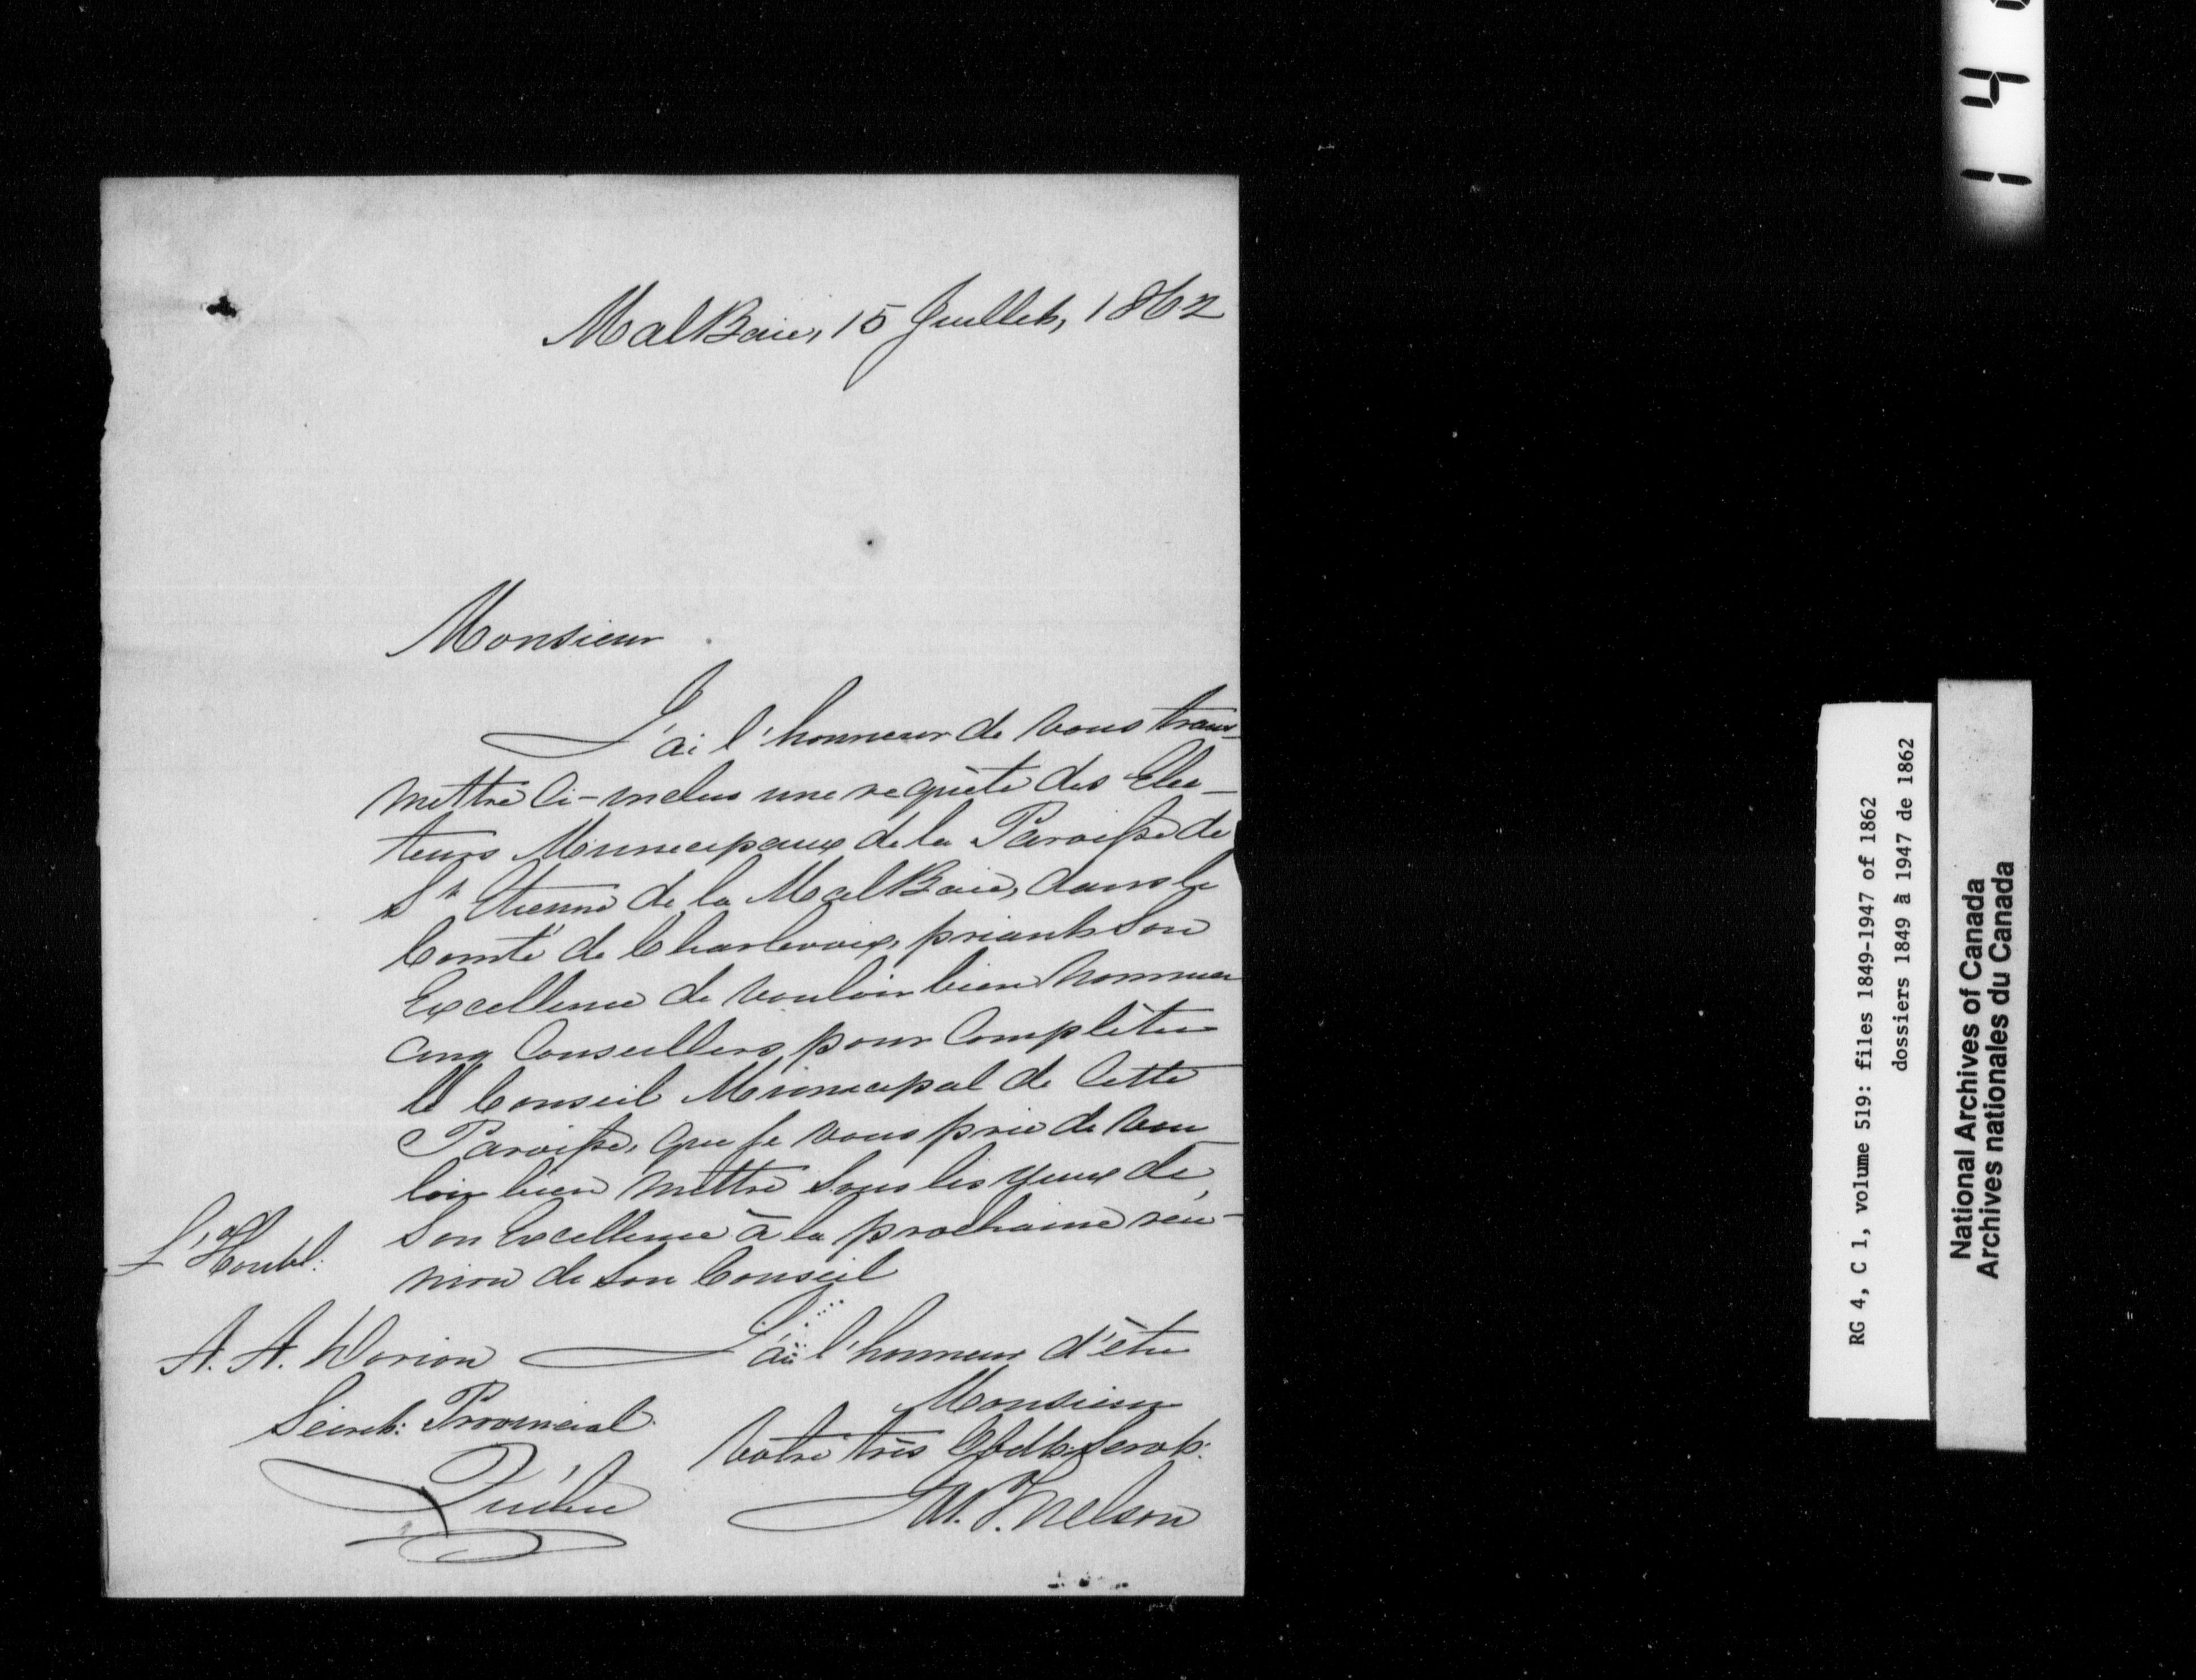 MalBaie, 15 Juillet, 1862
Monsieur
J'ai l'honneur de vous trans-
mettre ci-inclus une requête des Elec-
teurs Municipaux de la Paroisse de
St. Etienne de la MalBaie, dans le
Comté de Charlevoix, priant Son
Excellence de vouloir bien nommer
cinq Conseillers pour complèter
le Conseil Municipal de cette
Paroisse, que je vous prie de vou-
loir bien mettre sous les yeux de
Son Excellence à la prochaine réu-
nion de Son Conseil
J'ai l'honneur d'être
Monsieur
Votre très Obdt. Servt:
W. F. Nelson
L'Honbl:
A. A. Dorion
Secret: Provincial
Québec
1 4
RG 4, C 1, volume 519: files 1849-1947 of 1862
dossiers 1849 à 1947 de 1862
National Archives of Canada
Archives nationales du Canada